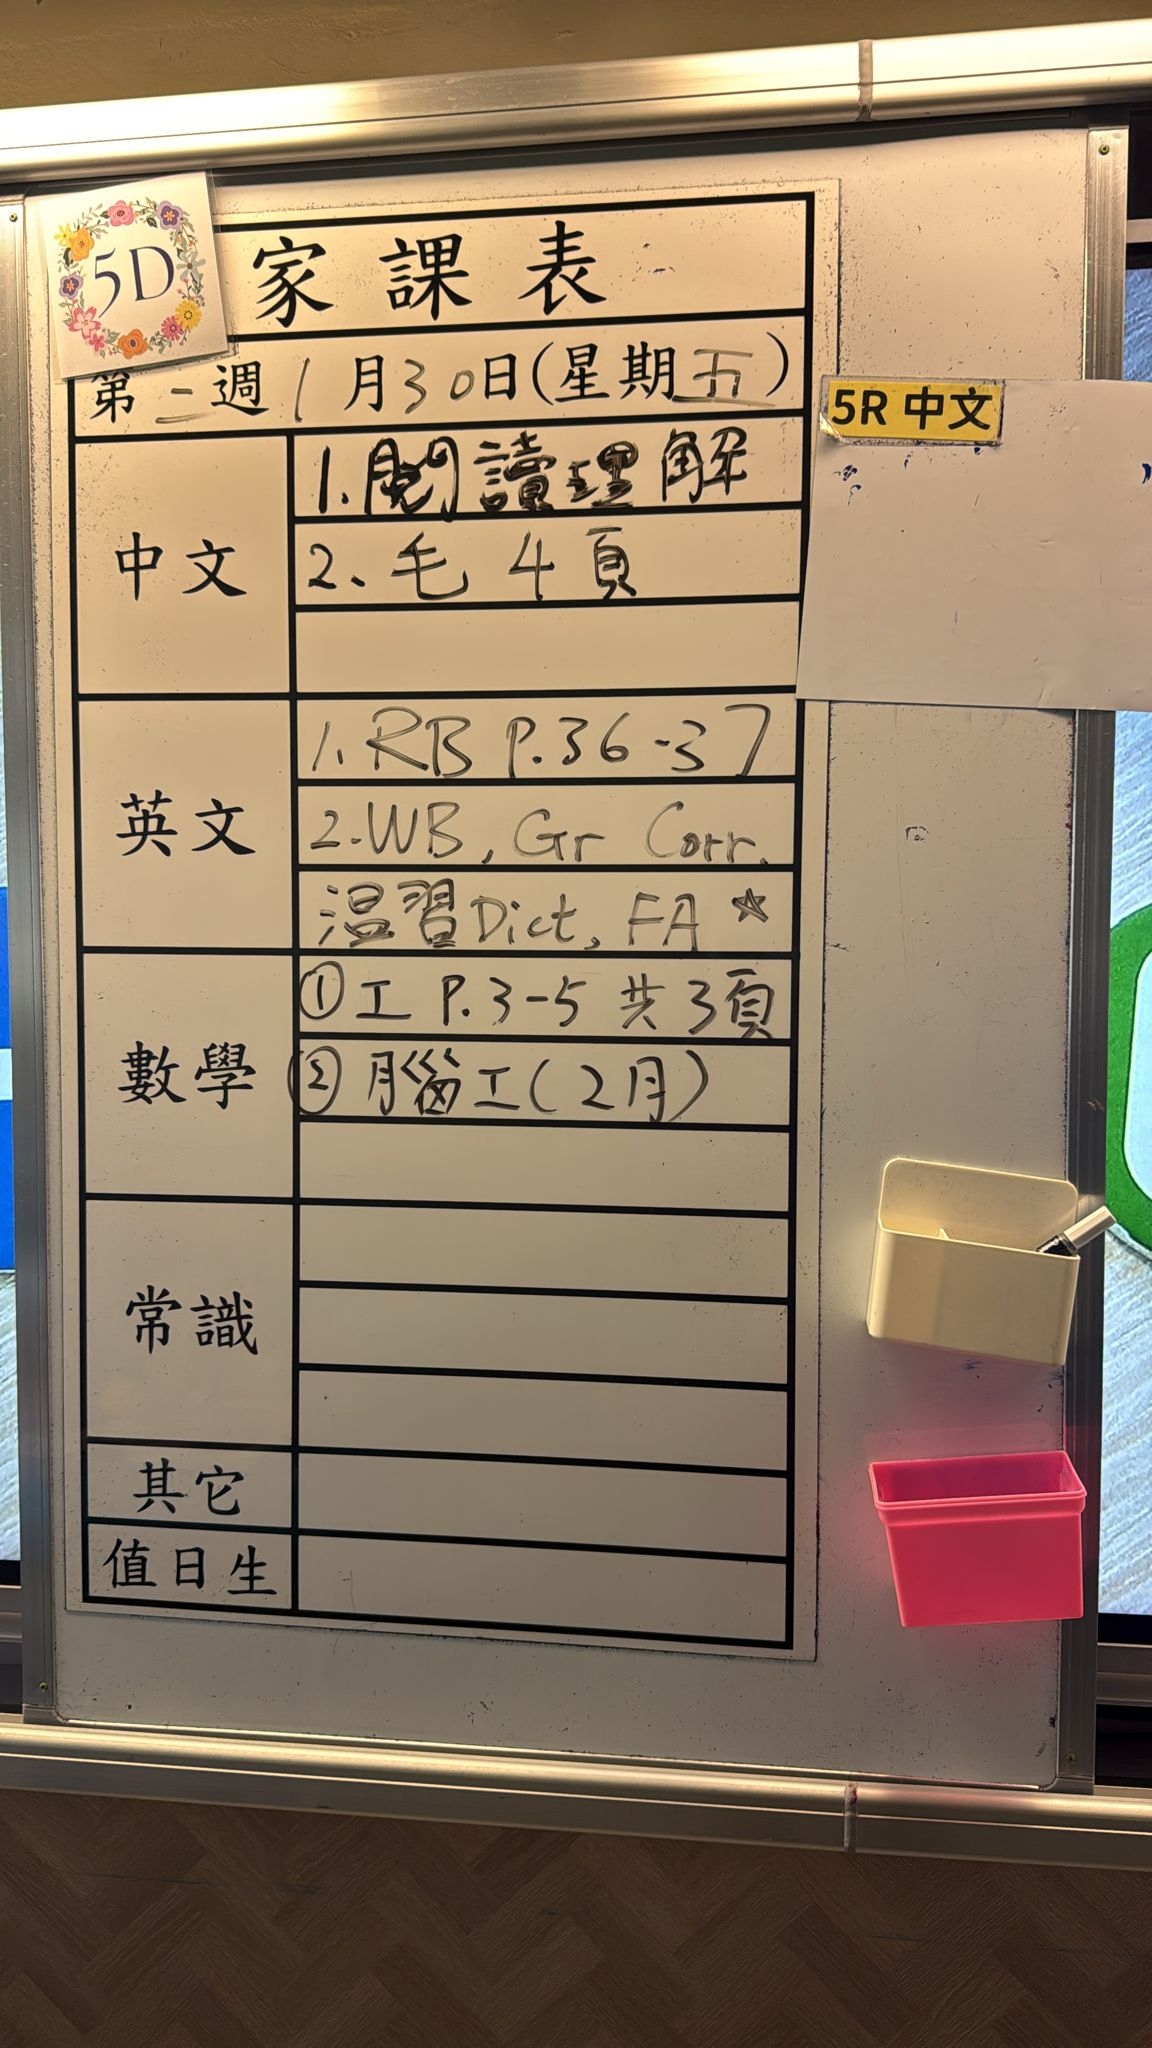 5D
家課表
第二週1月30日(星期五)
5R 中文
中文
1.閱讀理解
2.毛4頁
英文
1.RB P.36-37
2.WB, Gr Corr.
温習Dict, FA ☆
數學
①工 P.3-5 共3頁
②腦工(2月)
常識
其它
值日生